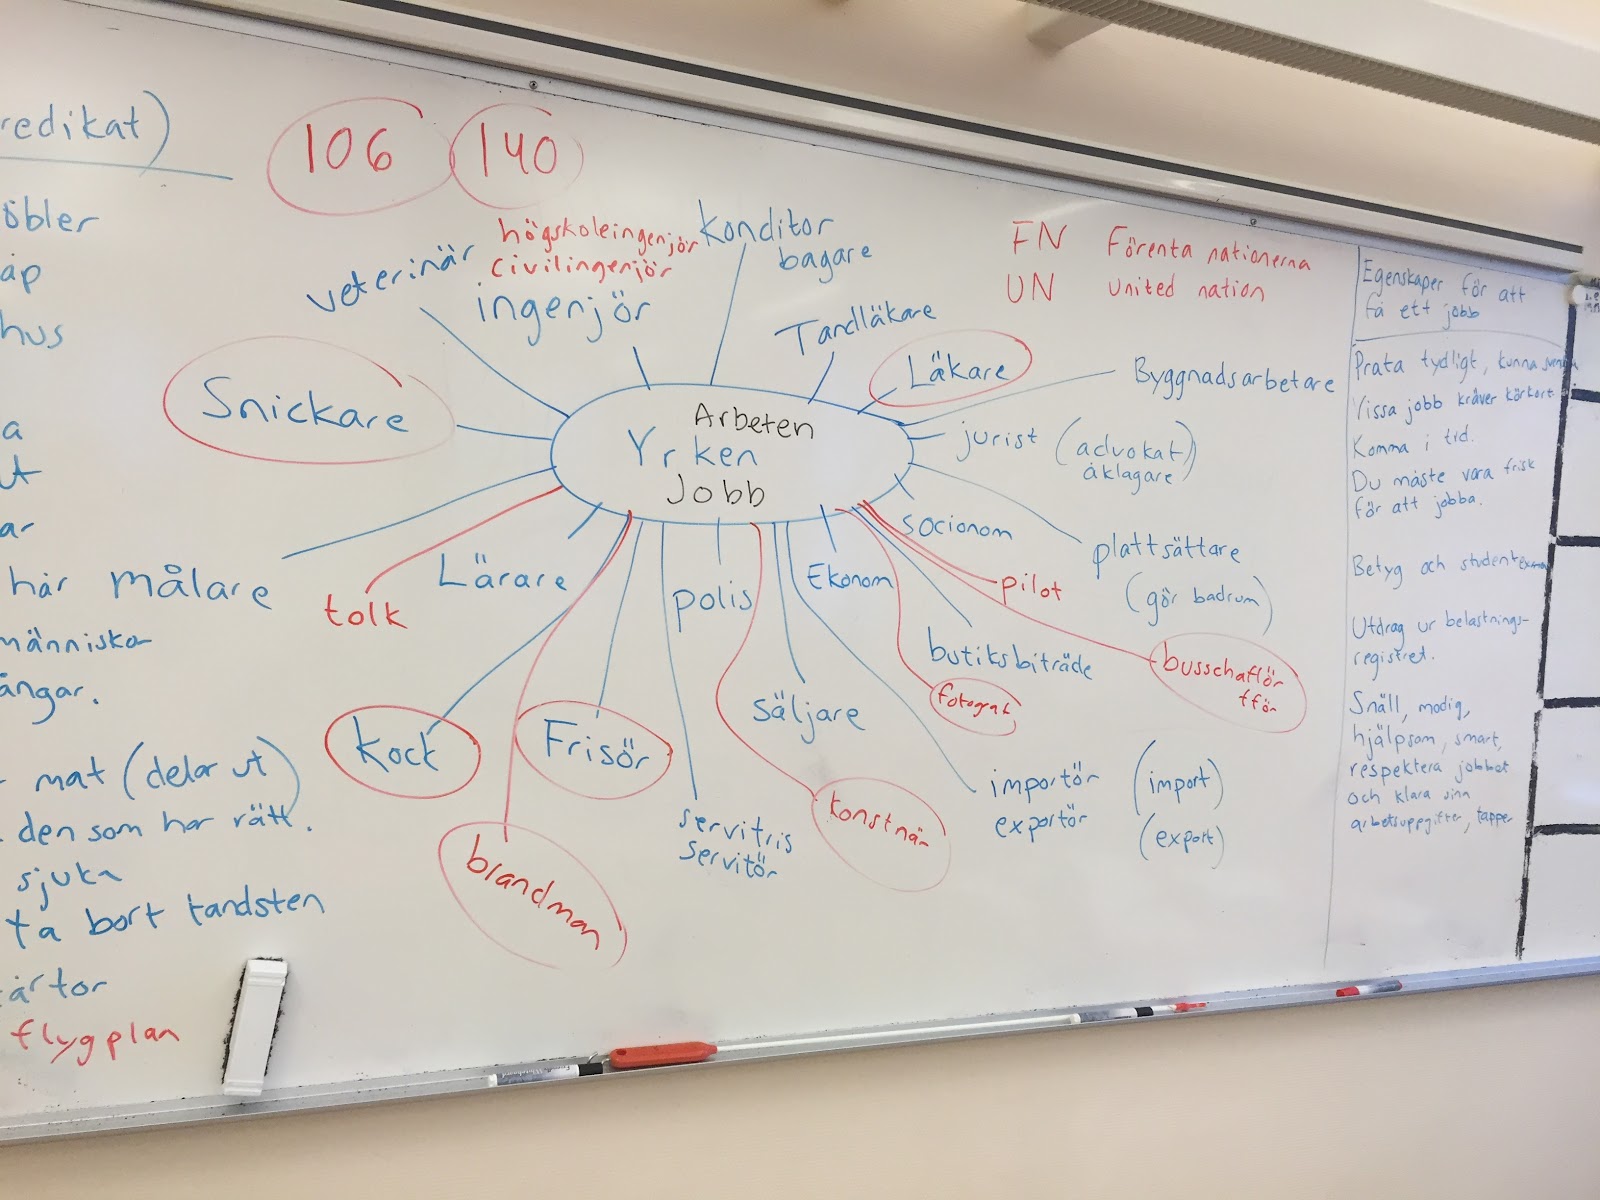 redikat)
öbler
åp
hus
a
ut
ar
här
människa
ångar.
mat (delar ut)
den som har rätt.
sjuka
ta bort tandsten
årtor
flygplan
106
140
högskoleingenjör
civilingenjör
ingenjör
veterinär
konditor
bagare
Tandläkare
Läkare
Byggnadsarbetare
Snickare
Arbeten
Yrken
Jobb
jurist (advokat)
åklagare
socionom
plattsättare
(gör badrum)
målare
tolk
Lärare
polis
Ekonom
pilot
butiksbiträde
busschaflör
fför
fotograf
Kock
Frisör
säljare
brandman
servitris
servitör
konstnär
importör (import)
exportör (export)
FN Förenta nationerna
UN united nation
Egenskaper för att
få ett jobb
Prata tydligt, kunna svenska
Vissa jobb kräver körkort
Komma i tid.
Du måste vara frisk
för att jobba.
Betyg och student
Utdrag ur belastnings-
registret.
Snäll, modig,
hjälpsam, smart,
respektera jobbet
och klara sina
arbetsuppgifter, tapper